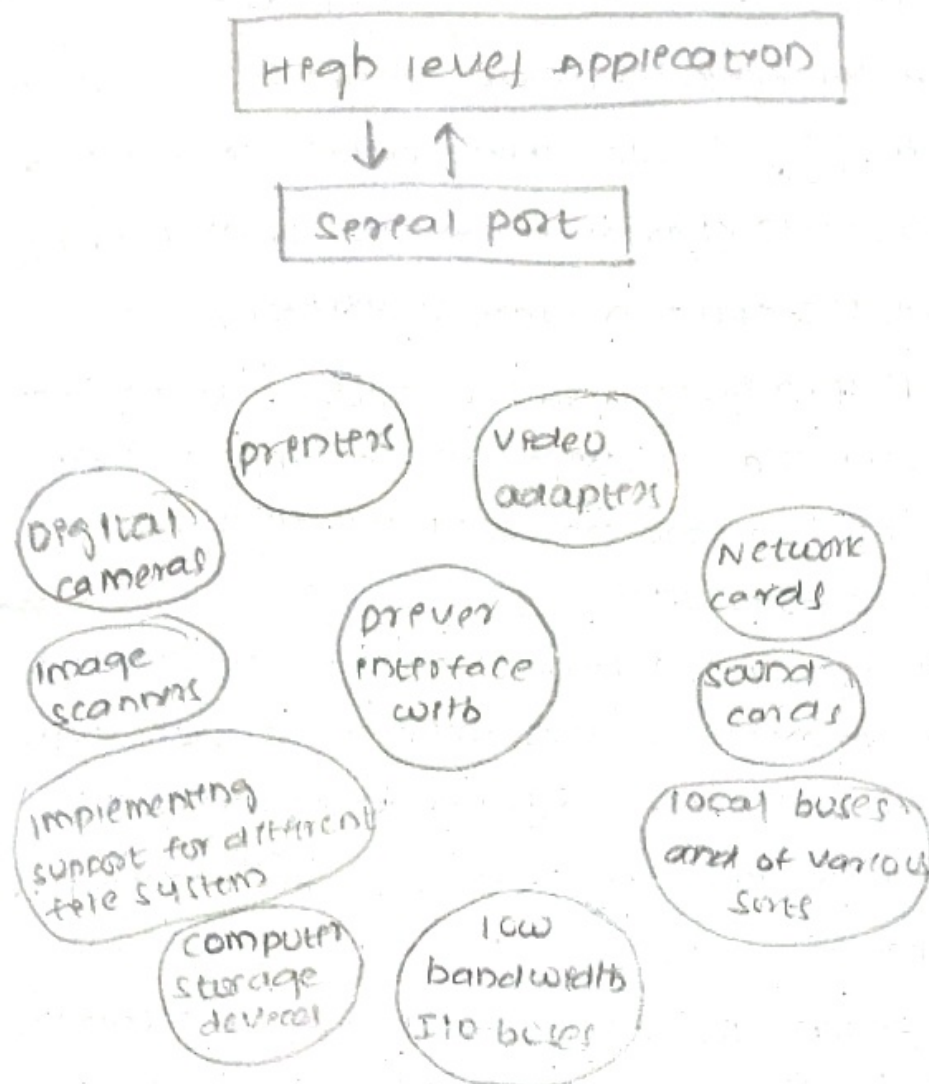 High level Application
Sereal port
Printers
Video
adapters
Digital
cameras
Network
cards
Driver
interface
with
Image
scanners
sound
cards
Implementing
support for different
file system
local buses
and of various
sorts
computer
storage
devices
low
bandwidth
I/O buses